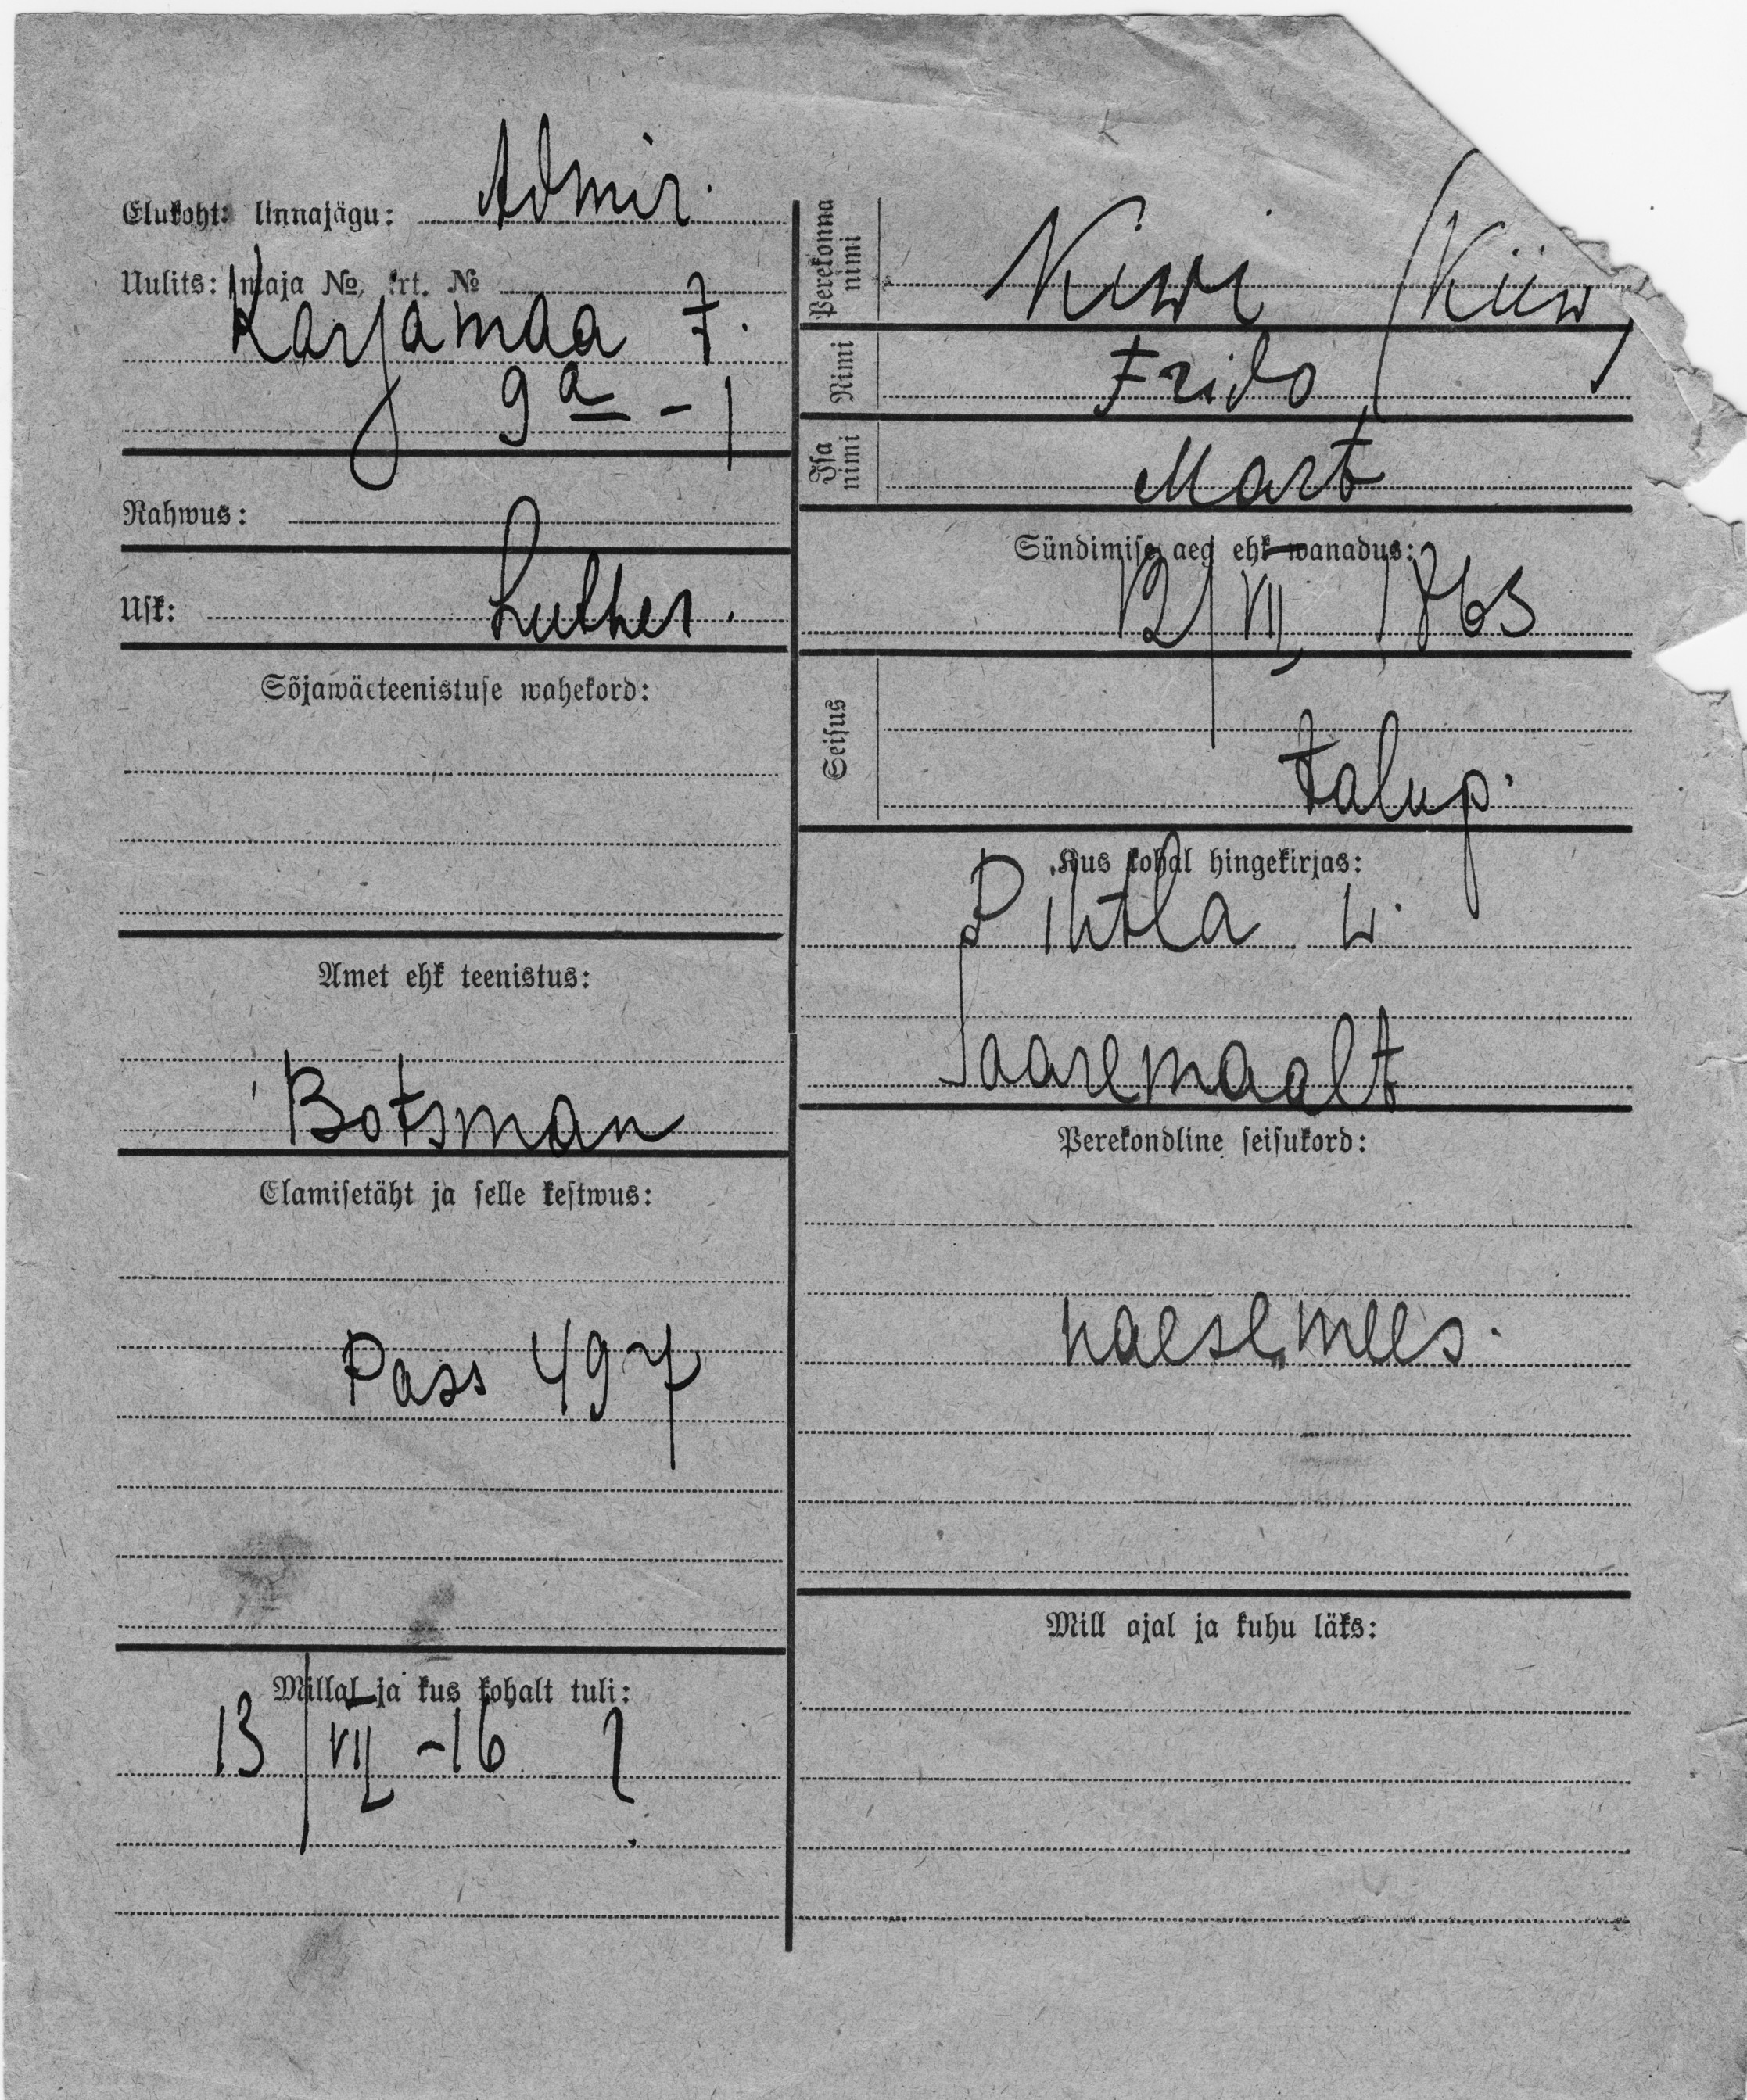 Elukoht: linnajagu: Admir.
Uulits: maja № krt. №
Karjamaa t.
9a - 1
Rahwus:
Usk: Luther.
Sõjawäeteenistuse wahekord:
Amet ehk teenistus:
Botsman
Elamisetäht ja selle kestwus:
Pass 497
Millal ja kus kohalt tuli:
13/VII -16 ?
Perekonna nimi Kiwi /Kiiw/
Nimi Frido
Isa nimi Mart
Sündimise aeg ehk wanadus:
12/VII, 1863
Seisus
talup.
Kus kohal hingekirjas:
Pihtla w.
Saaremaalt
Perekondline seisukord:
naesemees.
Mill ajal ja kuhu läks: